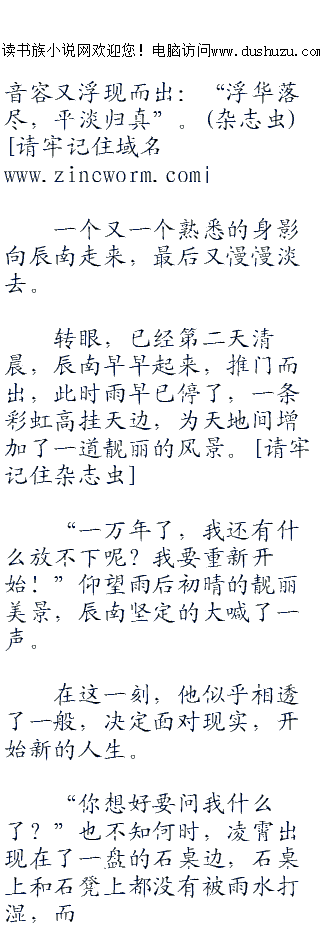 读书族小说网欢迎您！电脑访问www.dushuzu.com
音容又浮现而出：“浮华落
尽，平淡归真”。(杂志虫)
[请牢记住域名
www.zincworm.com|
一个又一个熟悉的身影
向辰南走来，最后又漫漫淡
去。
转眼，已经第二天清
晨，辰南早早起来，推门而
出，此时雨早已停了，一条
彩虹高挂天边，为天地间增
加了一道靓丽的风景。[请牢
记住杂志虫]
“一万年了，我还有什
么放不下呢？我要重新开
始！”仰望雨后初晴的靓丽
美景，辰南坚定的大喊了一
声。
在这一刻，他似乎相透
了一般，决定面对现实，开
始新的人生。
“你想好要问我什么
了？”也不知何时，凌霄出
现在了一盘的石桌边，石桌
上和石凳上都没有被雨水打
湿，而